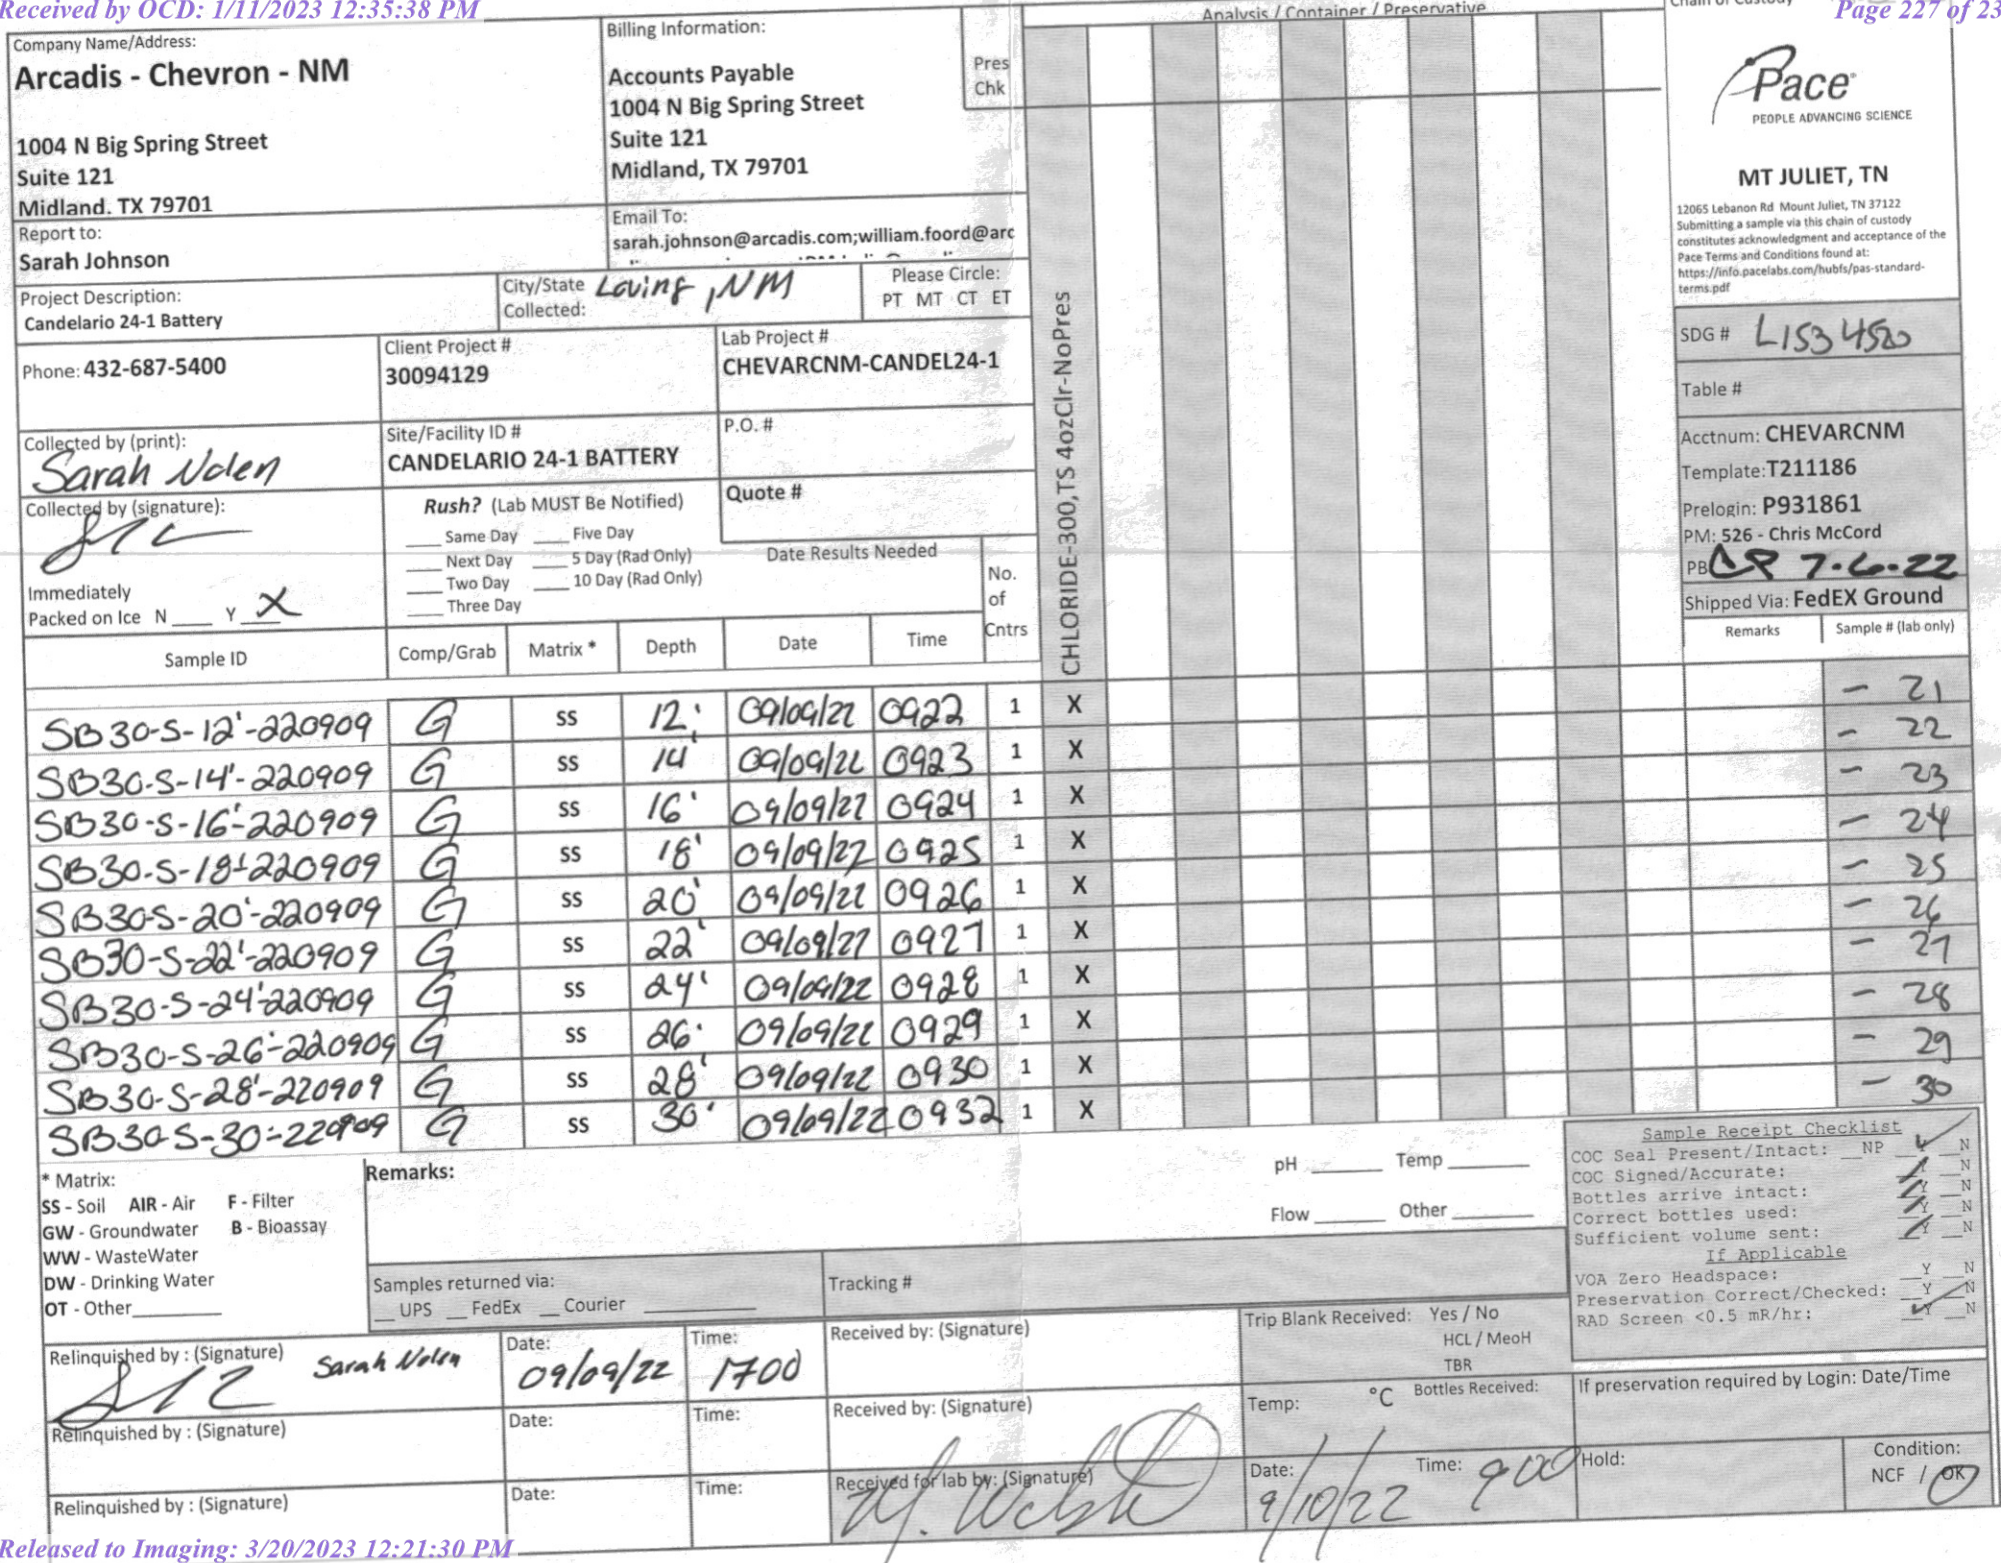 Received by OCD: 1/11/2023 12:35:38 PM
Page 227 of 23
Company Name/Address:
Arcadis - Chevron - NM
1004 N Big Spring Street
Suite 121
Midland, TX 79701
Billing Information:
Accounts Payable
1004 N Big Spring Street
Suite 121
Midland, TX 79701
Pres
Chk
Analysis / Container / Preservative
Chain of Custody
Pace
PEOPLE ADVANCING SCIENCE
MT JULIET, TN
12065 Lebanon Rd Mount Juliet, TN 37122
Submitting a sample via this chain of custody
constitutes acknowledgment and acceptance of the
Pace Terms and Conditions found at:
https://info.pacelabs.com/hubfs/pas-standard-
terms.pdf
Report to:
Sarah Johnson
Email To:
sarah.johnson@arcadis.com;william.foord@arc
Project Description:
Candelario 24-1 Battery
City/State
Collected: Loving, NM
Please Circle:
PT MT CT ET
Phone: 432-687-5400
Client Project #
30094129
Lab Project #
CHEVARCNM-CANDEL24-1
Collected by (print):
Sarah Nolen
Site/Facility ID #
CANDELARIO 24-1 BATTERY
P.O. #
Collected by (signature):
Rush? (Lab MUST Be Notified)
___ Same Day ___ Five Day
___ Next Day ___ 5 Day (Rad Only)
___ Two Day ___ 10 Day (Rad Only)
___ Three Day
Quote #
Date Results Needed
Immediately
Packed on Ice N ___ Y X
No.
of
Cntrs
CHLORIDE-300,TS 4ozClr-NoPres
SDG # L1534580
Table #
Acctnum: CHEVARCNM
Template:T211186
Prelogin: P931861
PM: 526 - Chris McCord
PB 7-6-22
Shipped Via: FedEX Ground
Remarks Sample # (lab only)
Sample ID Comp/Grab Matrix * Depth Date Time
SB30-S-12'-220909 G SS 12' 09/09/22 0922 1 X - 21
SB30-S-14'-220909 G SS 14' 09/09/22 0923 1 X - 22
SB30-S-16'-220909 G SS 16' 09/09/22 0924 1 X - 23
SB30-S-18'-220909 G SS 18' 09/09/22 0925 1 X - 24
SB30-S-20'-220909 G SS 20' 09/09/22 0926 1 X - 25
SB30-S-22'-220909 G SS 22' 09/09/22 0927 1 X - 26
SB30-S-24'-220909 G SS 24' 09/09/22 0928 1 X - 27
SB30-S-26'-220909 G SS 26' 09/09/22 0929 1 X - 28
SB30-S-28'-220909 G SS 28' 09/09/22 0930 1 X - 29
SB30-S-30'-220909 G SS 30' 09/09/22 0932 1 X - 30
* Matrix:
SS - Soil AIR - Air F - Filter
GW - Groundwater B - Bioassay
WW - WasteWater
DW - Drinking Water
OT - Other
Remarks:
pH ___ Temp ___
Flow ___ Other ___
Sample Receipt Checklist
COC Seal Present/Intact: __NP __Y __N
COC Signed/Accurate: __Y __N
Bottles arrive intact: __Y __N
Correct bottles used: __Y __N
Sufficient volume sent: __Y __N
If Applicable
VOA Zero Headspace: __Y __N
Preservation Correct/Checked: __Y __N
RAD Screen <0.5 mR/hr: __Y __N
Samples returned via:
__ UPS __ FedEx __ Courier
Tracking #
Relinquished by : (Signature)
Sarah Nolen
Date:
09/09/22
Time:
1700
Received by: (Signature)
Trip Blank Received: Yes / No
HCL / MeoH
TBR
Relinquished by : (Signature)
Date:
Time:
Received by: (Signature)
Temp: °C Bottles Received:
If preservation required by Login: Date/Time
Relinquished by : (Signature)
Date:
Time:
Received for lab by: (Signature)
Date:
9/10/22
Time: 900
Hold:
Condition:
NCF / OK
Released to Imaging: 3/20/2023 12:21:30 PM